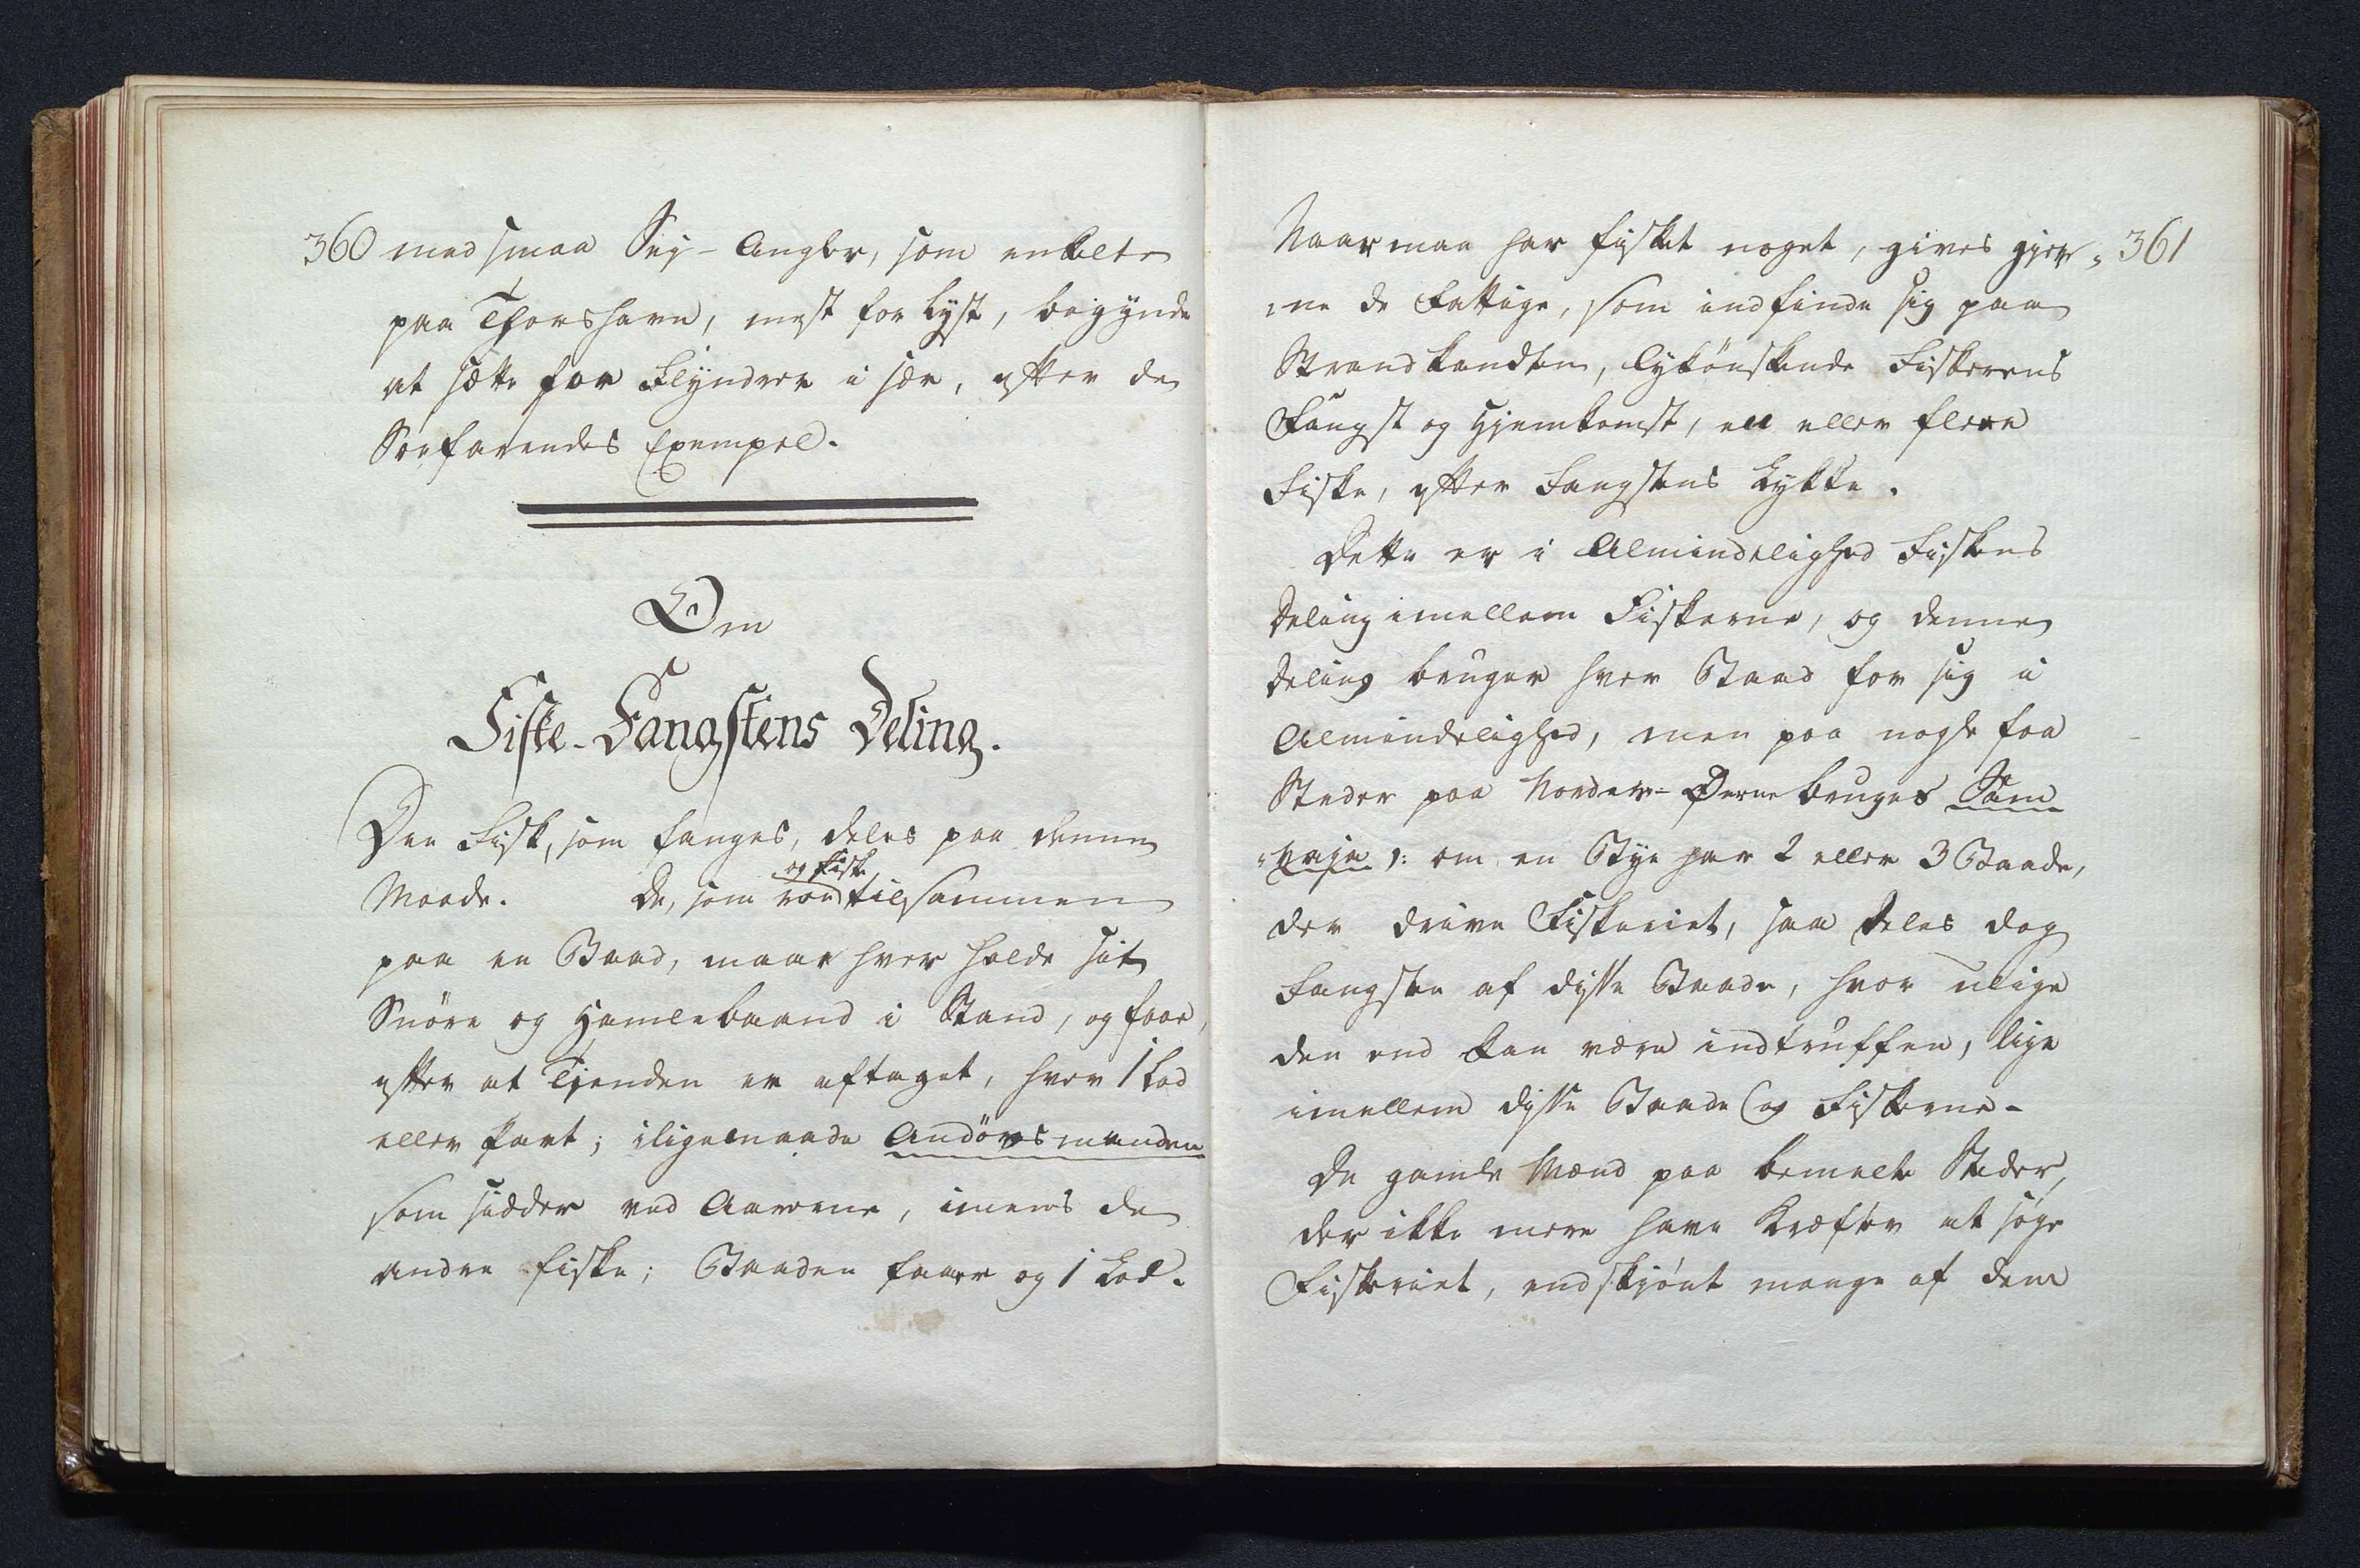 360 med smaa Sey-Angler, som enkelte
paa Thorshavn, mest for Lyst, begynde
at sætte for Flyndrer i sær, efter de
Søefarendes Exempel.
Om
Fiske-Fangstens Deling.
Den Fisk, som fanges, deles paa denne
og fiske
Maade. De, som roe tilsammen
paa en Baad, maae hver holde sit
Snöre og Hamlebaand i Stand, og faae,
efter at Tienden er aftaget, hver 1 Lod
eller Part; iligemaade Andövsmanden
som sidder ved Aarerne, imens de
andre fiske; Baaden faaer og 1 Lod.
Naar man har fisket noget, gives gjer- 361
ne de Fattige, som indfinde sig paa
Strandkandten, lykönskende Fiskerens
Fangst og Hjemkomst, en eller flere
Fiske, efter Fangstens Lykke.
Dette er i Almindelighed Fiskens
Deling imellem Fiskerne, og denne
Deling bruger hver Baad for sig i
Almindelighed, men paa nogle faa
Steder paa Norder-Øerne bruges Sam
ɔ: om en Bye har 2 eller 3 Baade,
der drive Fiskeriet, saa deles dog
Fangsten af disse Baade, hvor ulige
den end kan være indtruffen, lige
imellem disse Baade og Fiskerne.
De gamle Mænd paa bemelte Steder,
der ikke mere have Kræfter at søge
Fiskeriet, endskjönt mange af dem